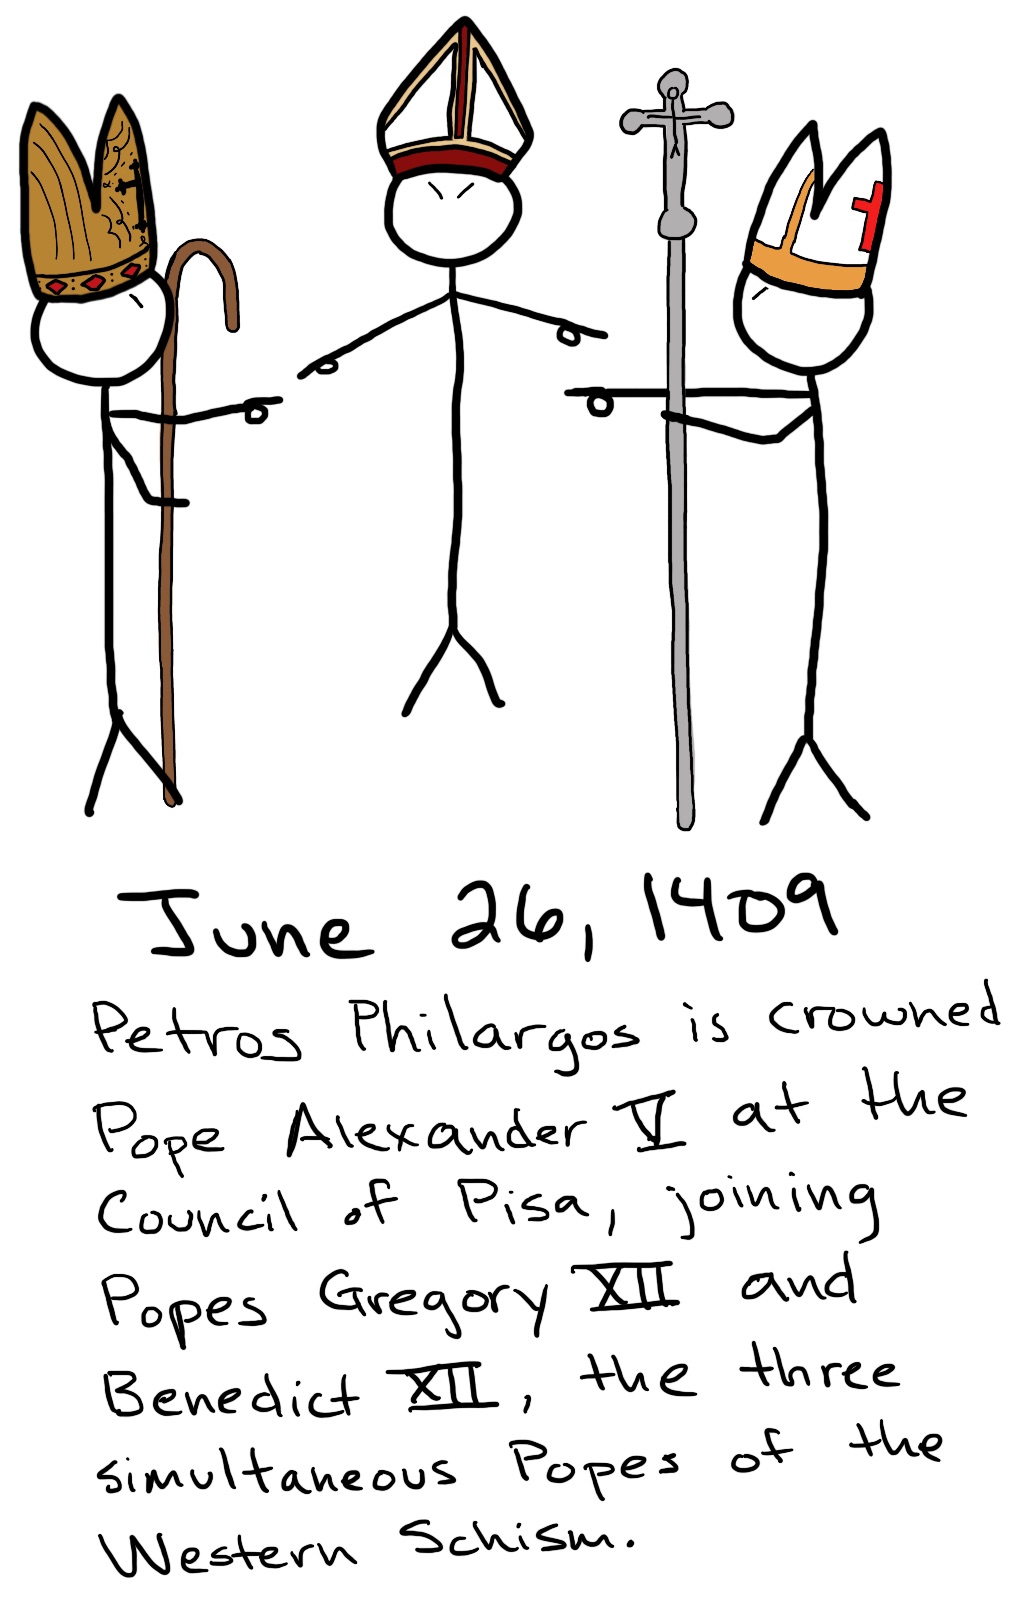 June 26, 1409
Petros Philargos is crowned
Pope Alexander V at the
Council of Pisa, joining
Popes Gregory XII and
Benedict XII, the three
simultaneous Popes of the
Western Schism.